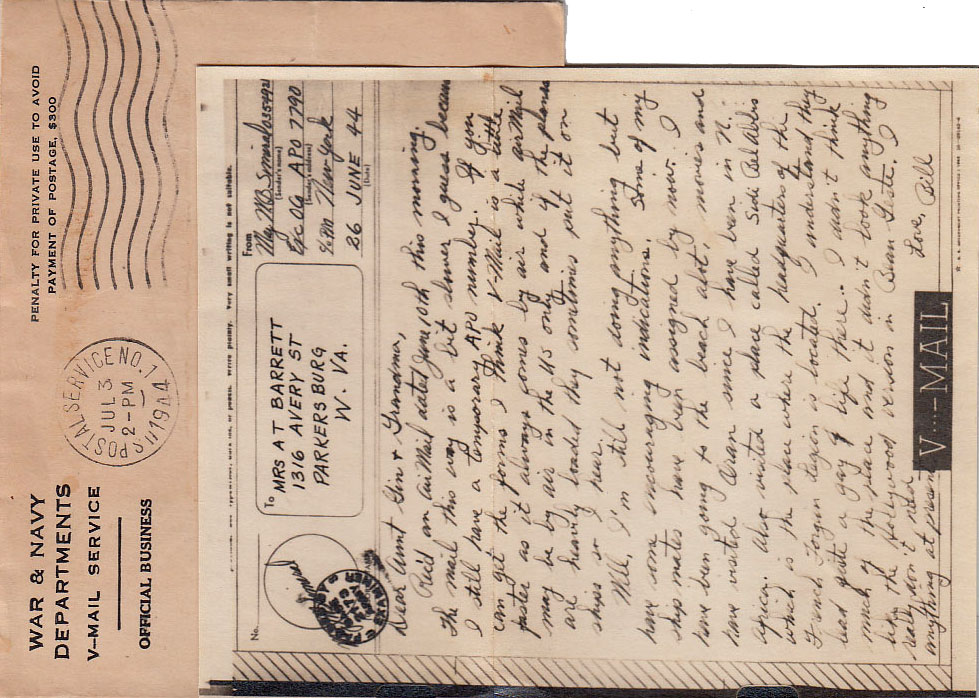 WAR & NAVY
DEPARTMENTS
V—MAIL SERVICE
OFFICIAL BUSINESS
U S POSTAL SERVICE NO. 1
JUL 3
2-PM
1944
PENALTY FOR PRIVATE USE TO AVOID
PAYMENT OF POSTAGE, $300
very plainly. Very small writing is not suitable.
No.
To
MRS A T BARRETT
1316 AVERY ST
PARKERSBURG
W. VA.
From
Maj
(Sender's name)
APO 7790
(Sender's address)
% PM New York
26 JUNE 44
(Date)
Dear Aunt Gin & Grandma,
Rec'd an air Mail dated June 10th this morning.
The mail this way is a bit slower I guess because
I still have a temporary APO number. If you
can get the forms I think V-Mail is a little
faster as it always comes by air while air Mail
may be by air in the US only and if the planes
are heavily loaded they sometimes put it on
ships so I hear.
Well, I'm still not doing anything but
have some encouraging indications. Some of my
ship mates have been assigned by now. I
have been going to the beach a lot, movies and
have visited Oran since I have been in N.
Africa. Also visited a place called Sidi Bel Abbis
which is the place where the headquarters of the
French Foreign Legion is located. I understand they
lead quite a gay life there. I didn't think
much of the place and it didn't look anything
like the Hollywood version in Beau Geste. I
really don't need
anything at present
Love, Bill
V···—MAIL